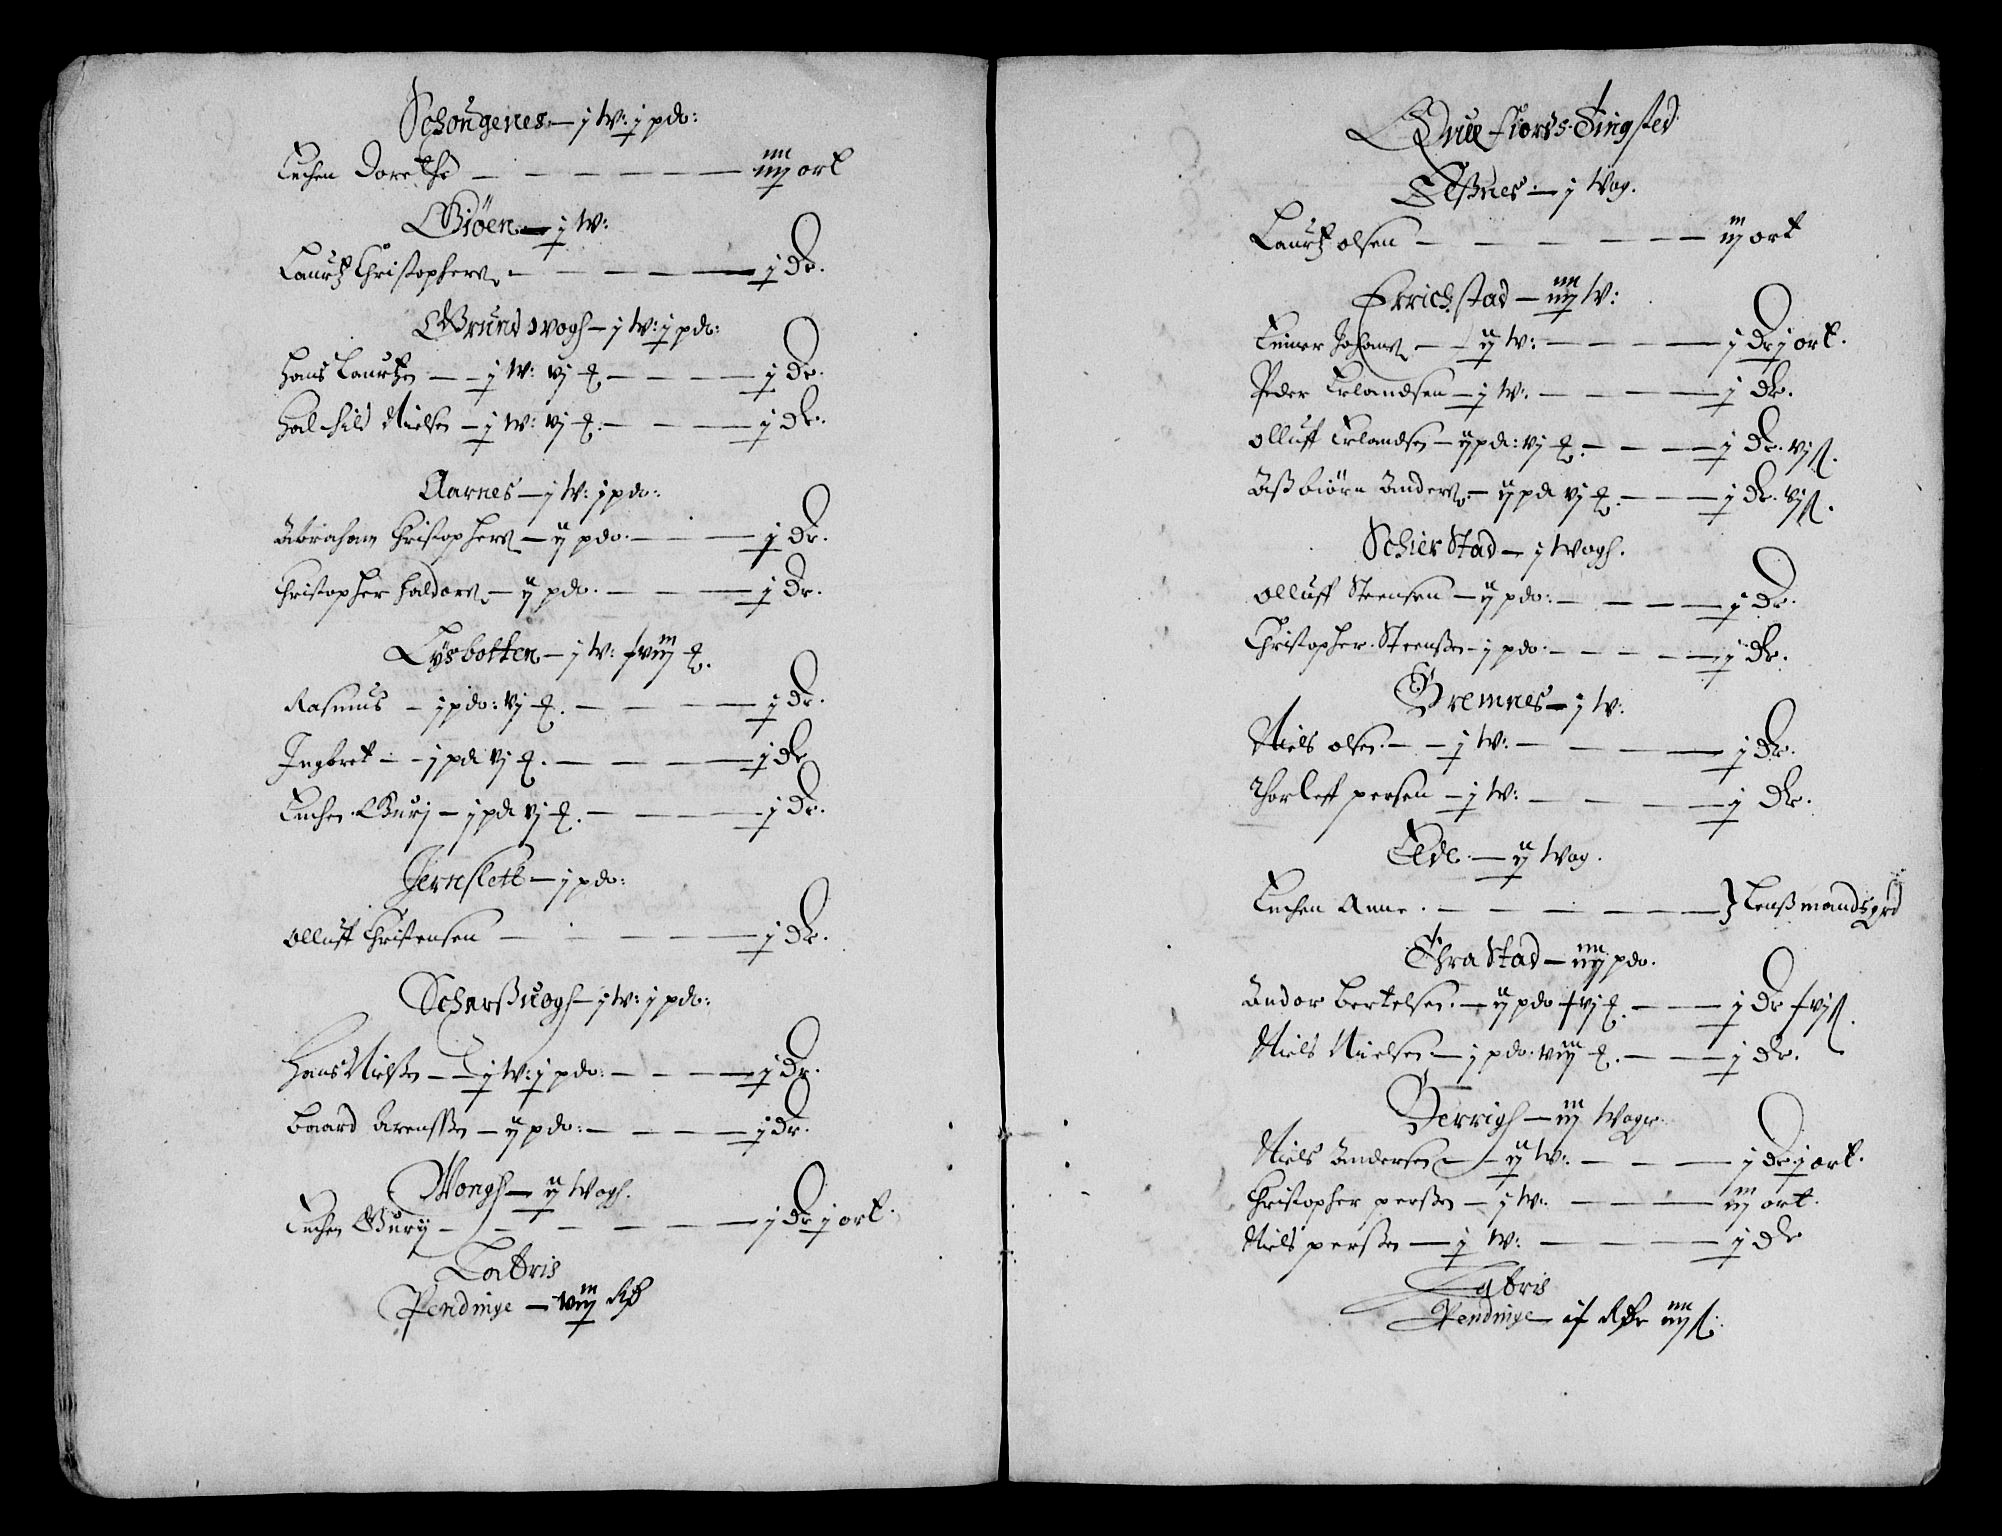 Schougenes — j W: j pdo:
Enchen Dorethe — — — — — — iiij ort
Giöen — j W:
Laurtz Christophers — — — — — j Dr.
Grundvogh — j W: j pdo:
Hans Laurtzen — — j W: vj — — — j Dr.
Halfhild Nielsen — j W: vj — — — j Dr.
Aarnes — j W: j pdo:
Abraham Christophers — ij pdo. — — — j Dr.
Christopher Haldors — ij pdo. — — — j Dr.
Lysbotten — j W: viij
Rasmus — j pdo: vj — — — j Dr.
Ingbret — — j pd vj — — — — j Dr
Enchen Gurj — j pd vj — — — — j Dr.
Jernslett — j pdo:
Olluff Christensen — — — — — j Dr.
Scharssuogh — j W: j pdo:
Hans Nielssen — — j W: j pdo: — — — j Dr.
Baard Arenssen — ij pdo: — — — — j Dr.
Wongh — ij Wogh.
Enchen Gurij — — — — — — j Dr j ort.
Latris
Pendinge — viij

Que fiords Tingsted
Elssnes — j Wog.
Laurtz Olsen — — — — — — iij ort
Errichstad — iiij W:
Einer Johans — — ij W: — — — j Dr j ort.
Peder Erlandsen — j W: — — — — j Dr.
Olluff Erlandsen — ij pd: vj — — — j Dr. vj ß.
Assbiörn Anders — ij pd vj — — — j Dr. vj ß.
Schierstad — j Wogh.
Olluff Steensen — ij pdo: — — — — j Dr.
Christopher Steenssen — j pdo: — — — — j Dr.
Gremnes — j W:
Niels Olsen — — j W: — — — — j Dr.
Thorleff Persen — j W: — — — — j Dr.
Eide — ij Wog.
Enchen Anne. — — — — — — } Lenssmandsgrd
Thrastad — iiij pdo.
Andor Bertelsen. — ij pdo vj — — j Dr vj ß.
Niels Nielsen — j pdo: viij — — j Dr.
Berrigh — iij Wogr.
Niels Andersen — — ij W: — — — j Dr j ort.
Christopher Perssen — j W: — — — iij ort.
Niels Perssen — j W: — — — — j Dr
Latris
Pendinge — iiij ß.